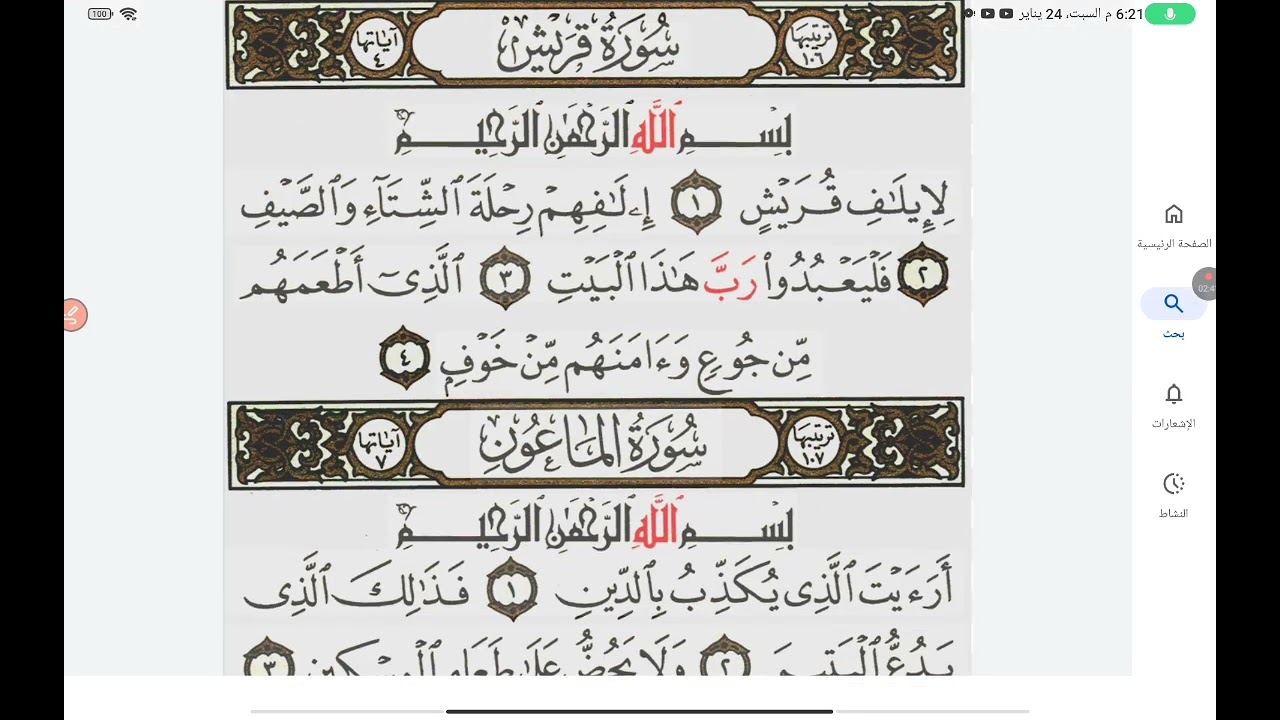 6:21 م السبت، 24 يناير
100
سُورَةُ قُرَيْشٍ
ترتيبها ١٠٦
آياتها ٤
بِسْمِ ٱللَّهِ ٱلرَّحْمَٰنِ ٱلرَّحِيمِ
لِإِيلَٰفِ قُرَيْشٍ ١ إِۦلَٰفِهِمْ رِحْلَةَ ٱلشِّتَآءِ وَٱلصَّيْفِ
٢ فَلْيَعْبُدُوا۟ رَبَّ هَٰذَا ٱلْبَيْتِ ٣ ٱلَّذِىٓ أَطْعَمَهُم
مِّن جُوعٍ وَءَامَنَهُم مِّنْ خَوْفٍ ٤
سُورَةُ المَاعُونِ
ترتيبها ١٠٧
آياتها ٧
بِسْمِ ٱللَّهِ ٱلرَّحْمَٰنِ ٱلرَّحِيمِ
أَرَءَيْتَ ٱلَّذِى يُكَذِّبُ بِٱلدِّينِ ١ فَذَٰلِكَ ٱلَّذِى
يَدُعُّ ٱلْيَتِيمَ ٢ وَلَا يَحُضُّ عَلَىٰ طَعَامِ ٱلْمِسْكِينِ ٣
الصفحة الرئيسية
بحث
الإشعارات
النشاط